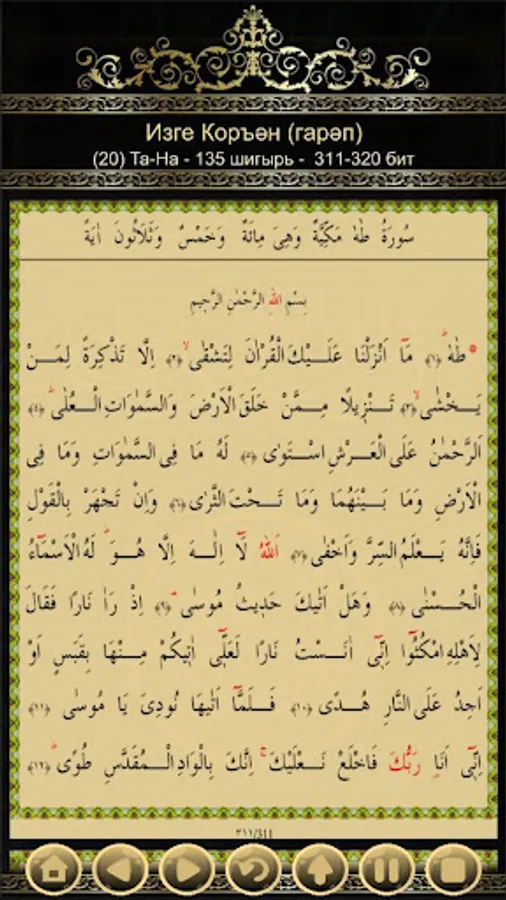 Изге Коръән (гарәп)
(20) Та-На - 135 шигырь - 311-320 бит
سُورَةُ طٰهٰ مَكِّيَّةٌ وَهِىَ مِائَةٌ وَخَمْسٌ وَثَلَاثُونَ اٰيَةً
بِسْمِ اللهِ الرَّحْمٰنِ الرَّحِيمِ
طٰهٰ ﴿١﴾ مَٓا اَنْزَلْنَا عَلَيْكَ الْقُرْاٰنَ لِتَشْقٰىۙ ﴿٢﴾ اِلَّا تَذْكِرَةً لِمَنْ
يَخْشٰىۙ ﴿٣﴾ تَنْزِيلًا مِمَّنْ خَلَقَ الْاَرْضَ وَالسَّمٰوَاتِ الْعُلٰىۜ ﴿٤﴾
اَلرَّحْمٰنُ عَلَى الْعَرْشِ اسْتَوٰى ﴿٥﴾ لَهُ مَا فِى السَّمٰوَاتِ وَمَا فِى
الْاَرْضِ وَمَا بَيْنَهُمَا وَمَا تَحْتَ الثَّرٰى ﴿٦﴾ وَاِنْ تَجْهَرْ بِالْقَوْلِ
فَاِنَّهُ يَعْلَمُ السِّرَّ وَاَخْفٰى ﴿٧﴾ اَللهُ لَٓا اِلٰهَ اِلَّا هُوَۜ لَهُ الْاَسْمَٓاءُ
الْحُسْنٰى ﴿٨﴾ وَهَلْ اَتٰيكَ حَدِيثُ مُوسٰىۢ ﴿٩﴾ اِذْ رَاٰ نَارًا فَقَالَ
لِاَهْلِهِ امْكُثُٓوا اِنِّٓى اٰنَسْتُ نَارًا لَعَلِّٓى اٰتِيكُمْ مِنْهَا بِقَبَسٍ اَوْ
اَجِدُ عَلَى النَّارِ هُدًى ﴿١٠﴾ فَلَمَّٓا اَتٰيهَا نُودِىَ يَا مُوسٰى ﴿١١﴾
اِنِّٓى اَنَا۬ رَبُّكَ فَاخْلَعْ نَعْلَيْكَۚ اِنَّكَ بِالْوَادِ الْمُقَدَّسِ طُوًىۜ ﴿١٢﴾
٣١١/311